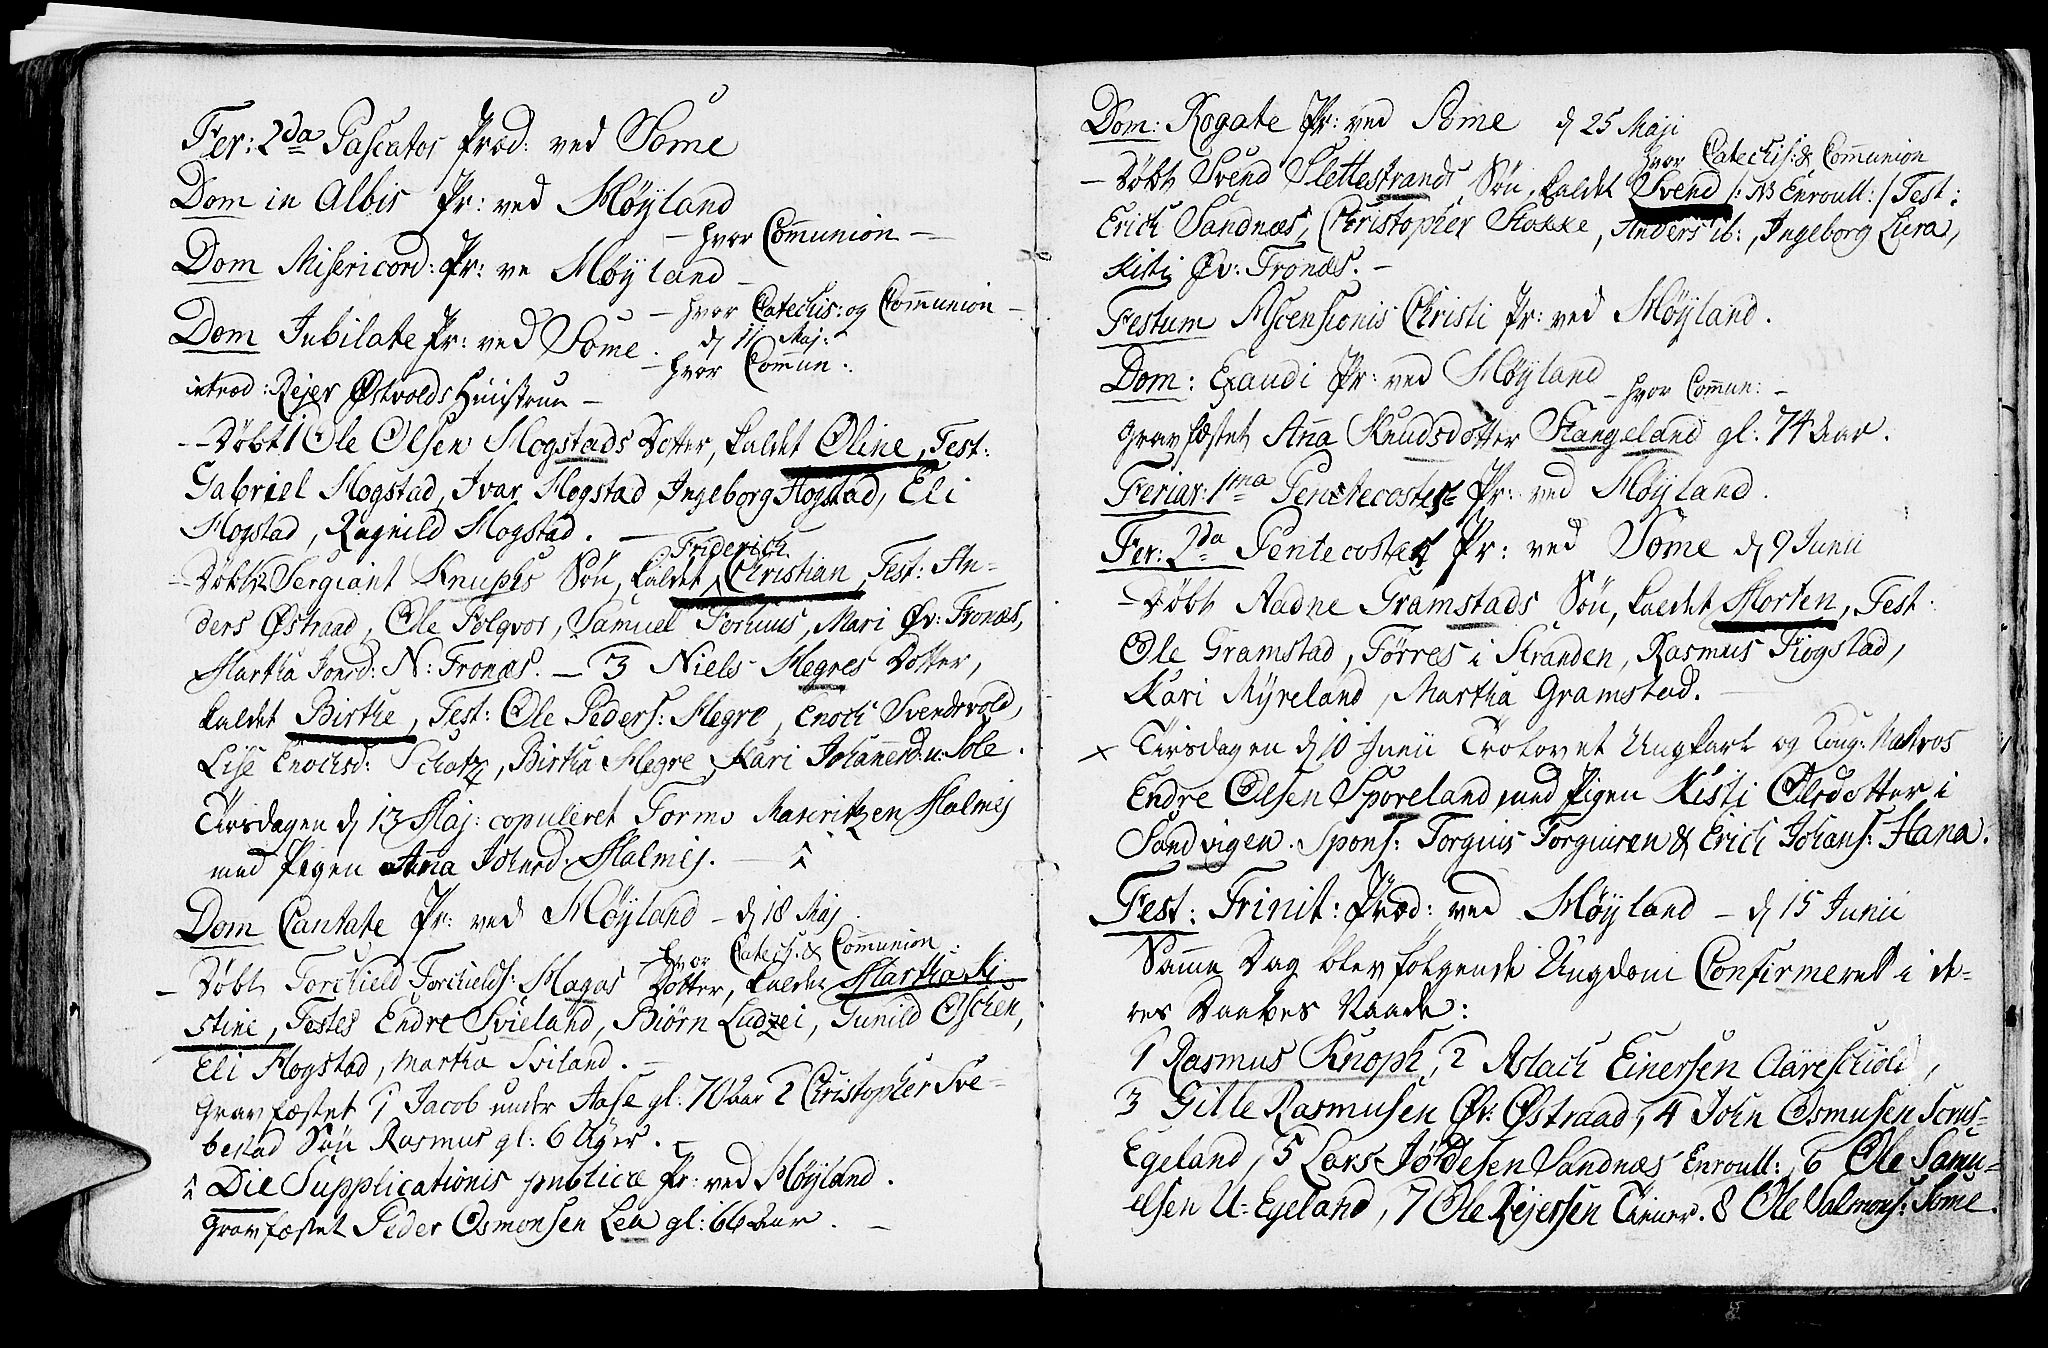 Fer: 2da Pascatos Præd: ved Some
Dom in Albis Pr: ved Høyland
- hvor Communion -
Dom Misericord: Pr: ve Høyland -
- hvor Catechis: og Communion -
Dom Jubilate Pr: ved Some. d 11 Maj:
- hvor Commun:
introd: Rejer Østvolds Huustrue -
- Døbt 1 Ole Olsen Hogstads Dotter, kaldet Oline, Test:
Gabriel Hogstad, Ivar Hogstad, Ingeborg Hogstad, Eli
Hogstad, Ragnild Hogstad. -
Friderich
- Døbt 2 Sergiant Knuphs Søn, kaldet Christian, Test: An-
ders Østraad, Ole Folqvor, Samuel Forhuus, Mari Øv: Tronæs,
Martha Jonsd: N: Tronæs. - 3 Niels Hegres Dotter,
kaldet Birthe, Test: Ole Peders: Hegre, Enoch Svendsvold,
Lise Enochsd: Schatz, Birtha Hegre, Kari Johannesd: u: Sole.
Tirsdagen d 13 Maj: copuleret Tormo Mauritzen Malmej
med Pigen Anna Johnsd: Malmej.
Dom Cantate Pr: ved Høyland - d 18 Maj
- hvor Catech: & Communion
- Døbt Torchield Torchields: Hagas Dotter, kaldet Martha Ki-
stine, Testes Endre Svieland, Biørn Ludzei, Gunild Eschen,
Eli Hogstad, Martha Sviland. -
Gravfæstet 1 Jacob under Aase gl: 70 Aar 2 Christopher Sve-
bestad Søn Rasmus gl: 6 Uger.
Die Supplicationis publicæ Pr: ved Høyland.
Gravfæstet Peder Osmonsen Lea gl: 66 Aar. -
Dom: Rogate Pr: ved Some d 25 Maji
hvor Catechis: & Communion
- Døbt Svend Slettestrands Søn, kaldet Svend /: NB Enroull: / Test:
Erich Sandnæs, Christopher Stokke, Anders ib:, Ingeborg Lura,
Kisti Øv: Tronæs. -
Festum Ascensionis Christi Pr: ved Høyland.
Dom: Exaudi Pr: ved Høyland - hvor Commun: -
Gravfæstet Anna Knudsdotter Stangeland gl: 74 Aar.
Feriar: 1ma Pentecostes Pr: ved Høyland.
Fer: 2da Pentecostes Pr: ved Some d 9 Junii
- Døbt Aadne Gramstads Søn, kaldet Morten, Test:
Ole Gramstad, Tørres i Stranden, Rasmus Fiogstad,
Kari Myreland, Martha Gramstad. -
x Tirsdagen d 10 Junii Trolovet Ungkarl og Kong: Matros
Endre Olsen Sporeland med Pigen Kisti Olsdotter i
Sandvigen. Spons: Torguis Torguisen & Erich Johans: Hana.
Fest: Trinit: Præd: ved Høyland - d 15 Junii
Samme Dag blev følgende Ungdom Confirmeret i de-
res Daabes Naade:
1 Rasmus Knoph, 2 Aslach Einersen Aareschiold,
3 Gitle Rasmusen Øv: Østraad, 4 John Osmusen Scrus-
Egeland, 5 Lars Jøldesen Sandnæs Enroull:, 6 Ole Samu-
elsen U: Egeland, 7 Ole Rejersen Tiener. 8 Ole Salmons: Some.